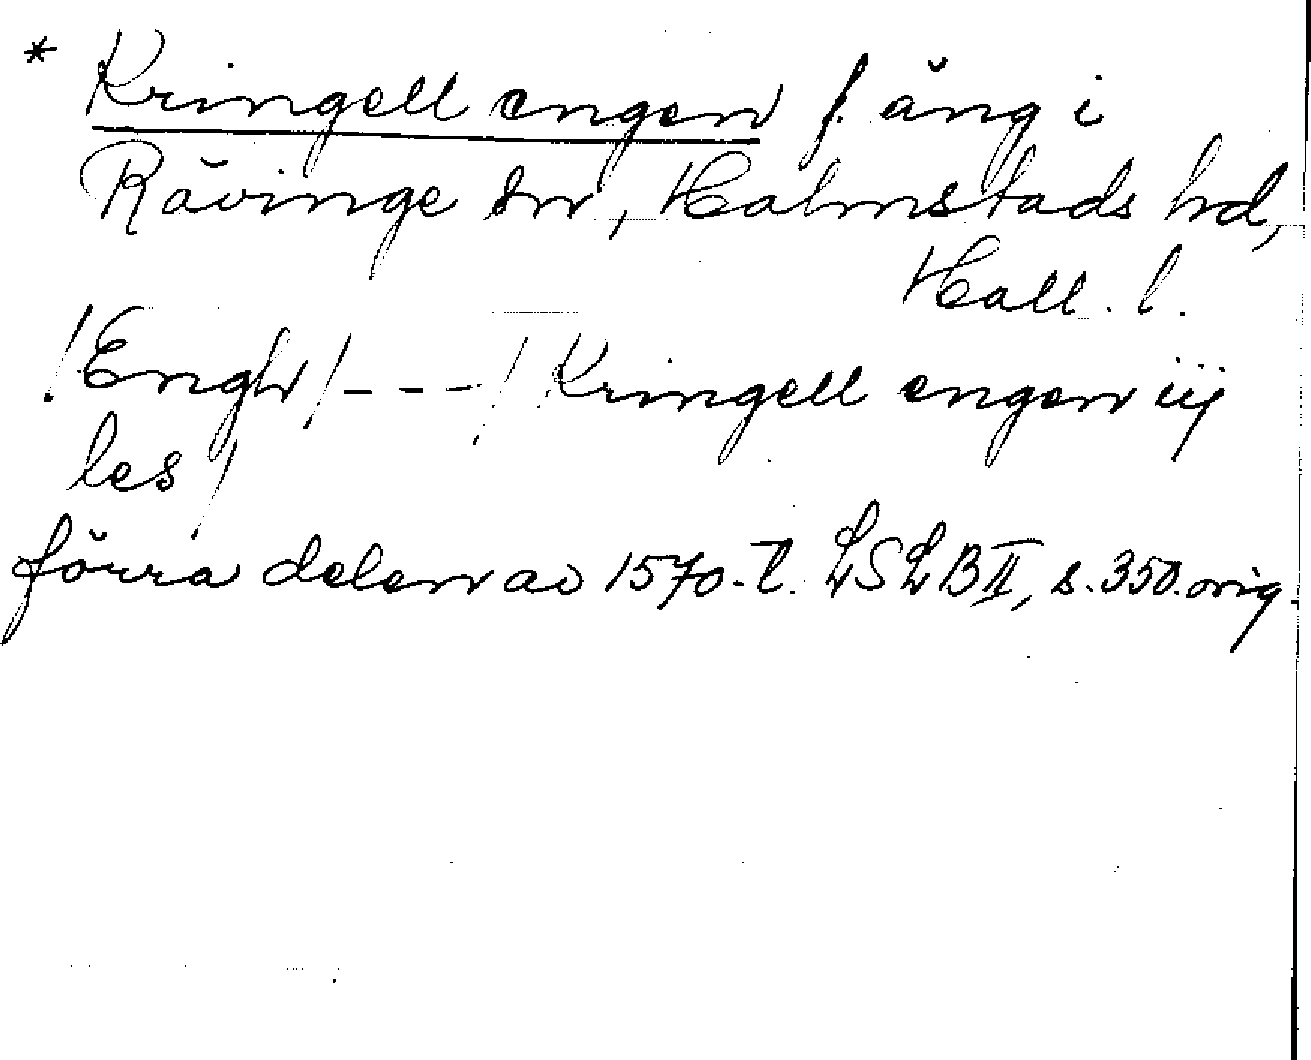 * Kringell engen f. äng i
Rävinge sn, Halmstads hd,
Hall. l.
/Engh/ - - - / Kringell engen iij
les /
förra delen av 1570-t. LSLB II, s. 350. orig.